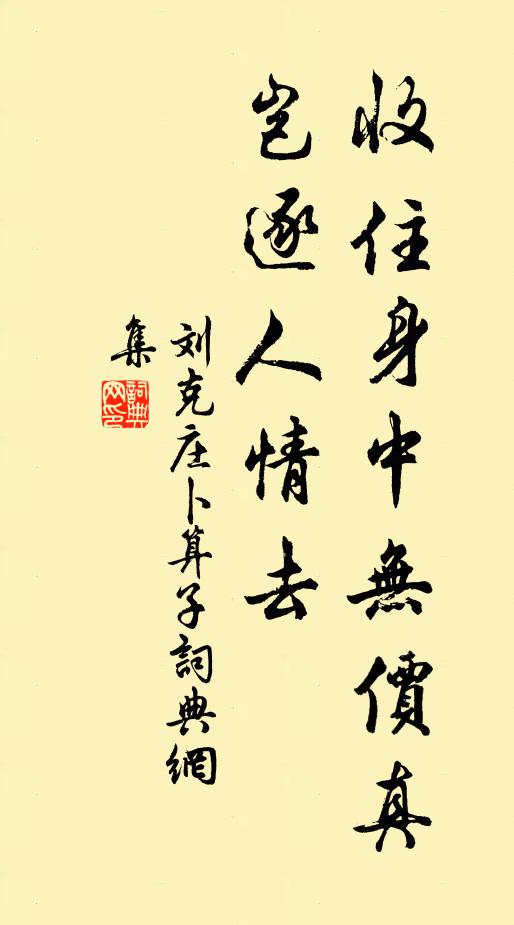 收住身中無價真
豈逐人情去
刘克庄卜算子詞典網
集
詞典
网印